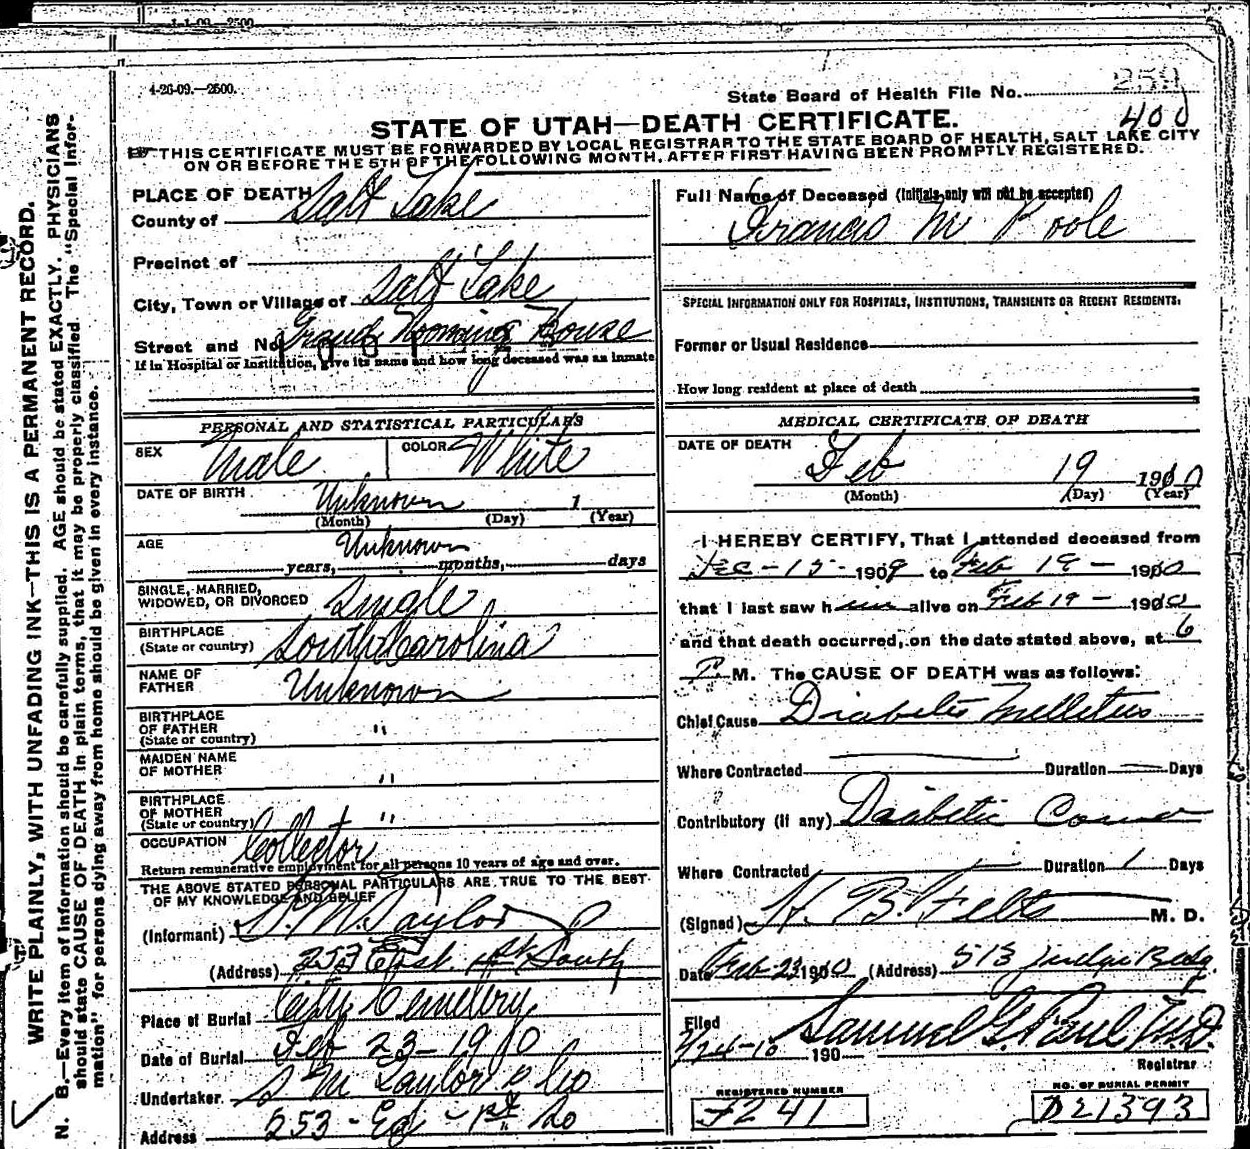 1-1-09—2500
4-26-09.—2500.
State Board of Health File No. 259
400
STATE OF UTAH—DEATH CERTIFICATE.
THIS CERTIFICATE MUST BE FORWARDED BY LOCAL REGISTRAR TO THE STATE BOARD OF HEALTH, SALT LAKE CITY
ON OR BEFORE THE 5TH OF THE FOLLOWING MONTH, AFTER FIRST HAVING BEEN PROMPTLY REGISTERED.
WRITE PLAINLY, WITH UNFADING INK—THIS IS A PERMANENT RECORD.
N. B.—Every item of information should be carefully supplied. AGE should be stated EXACTLY. PHYSICIANS
should state CAUSE OF DEATH in plain terms, that it may be properly classified. The "Special Infor-
mation" for persons dying away from home should be given in every instance.
PLACE OF DEATH
County of Salt Lake
Precinct of
City, Town or Village of Salt Lake
Street and No. Grand Rooming House
If in Hospital or Institution, give its name and how long deceased was as inmate
PERSONAL AND STATISTICAL PARTICULARS
SEX Male COLOR White
DATE OF BIRTH Unknown 1
(Month) (Day) (Year)
AGE Unknown
years, months, days
SINGLE, MARRIED,
WIDOWED, OR DIVORCED Single
BIRTHPLACE
(State or country) South Carolina
NAME OF
FATHER Unknown
BIRTHPLACE
OF FATHER
(State or country) "
MAIDEN NAME
OF MOTHER "
BIRTHPLACE
OF MOTHER
(State or country) "
OCCUPATION Collector
Return remunerative employment for all persons 10 years of age and over.
THE ABOVE STATED PERSONAL PARTICULARS ARE TRUE TO THE BEST
OF MY KNOWLEDGE AND BELIEF
(Informant) S. M. Taylor
(Address) 253 East 1st South
Place of Burial City Cemetery
Date of Burial Feb 23—1910
Undertaker S M Taylor & Co
Address 253 - Ea - 1st So
Full Name of Deceased (Initials only will not be accepted)
Francis M Poole
SPECIAL INFORMATION ONLY FOR HOSPITALS, INSTITUTIONS, TRANSIENTS OR RECENT RESIDENTS.
Former or Usual Residence
How long resident at place of death
MEDICAL CERTIFICATE OF DEATH
DATE OF DEATH
Feb 19 1910
(Month) (Day) (Year)
I HEREBY CERTIFY, That I attended deceased from
Dec - 15 - 1909 to Feb 19 - 1910
that I last saw him alive on Feb 19 - 1910
and that death occurred, on the date stated above, at 6
P. M. The CAUSE OF DEATH was as follows:
Chief Cause Diabetis Mellitus
Where Contracted — Duration — Days
Contributory (if any) Diabetic Coma
Where Contracted — Duration 1 Days
(Signed) H. B. Felts M. D.
Date Feb 23 1910 (Address) 513 Judge Bldg.
Filed
2/24-10 190 Samuel G. Paul M.D.
Registrar
REGISTERED NUMBER
NO. OF BURIAL PERMIT
F241
D21393